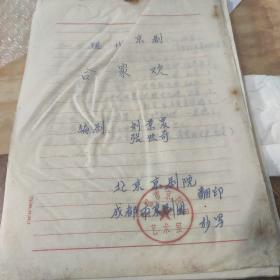 现代京剧
合家欢
编剧 刘景泉
张 奇
北京京剧院
成都市京剧团 翻印
抄写